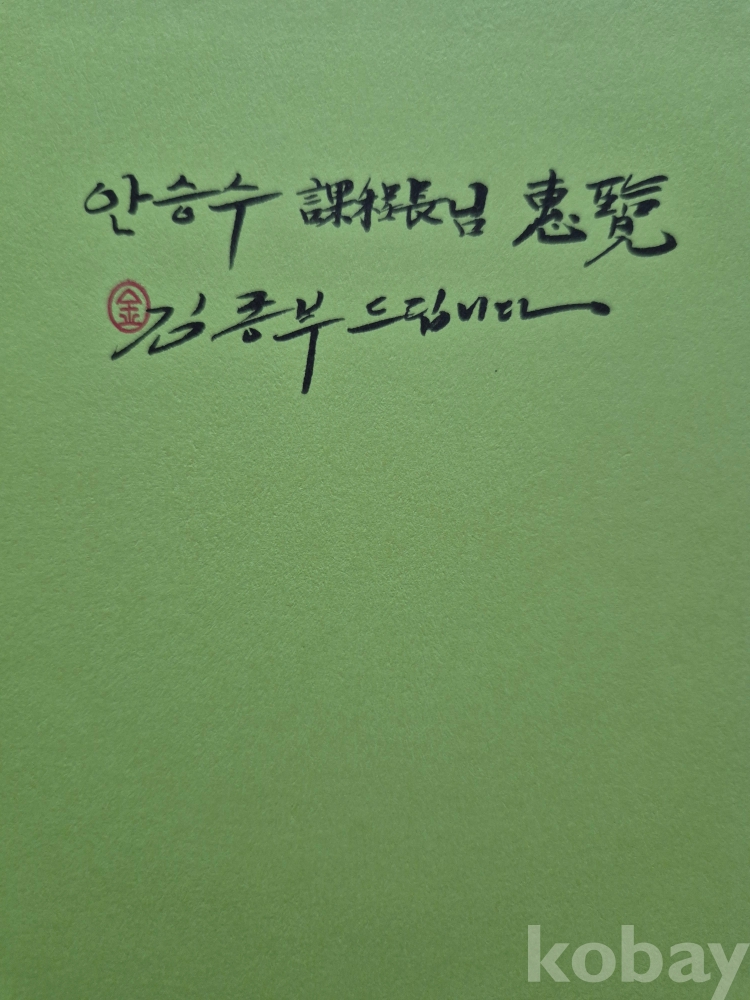 안승수 課程長님 惠覽
金 김종부 드립니다
kobay